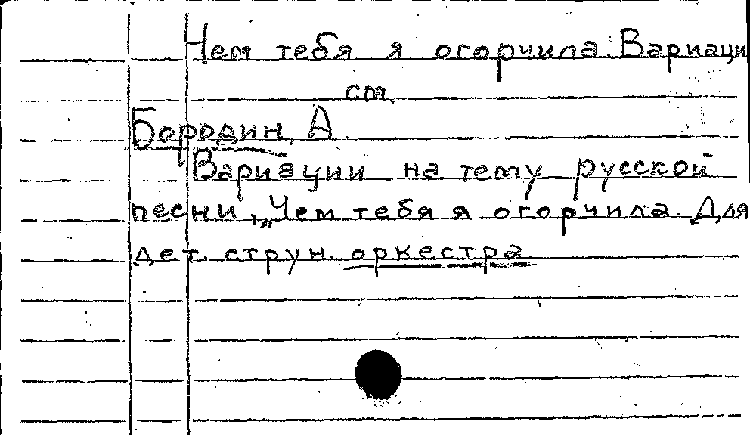 Чем тебя я огорчила. Вариаци
см.
Бородин, А.
Вариации на тему русской
песни „Чем тебя я огорчила. Для
дет. струн. оркестра